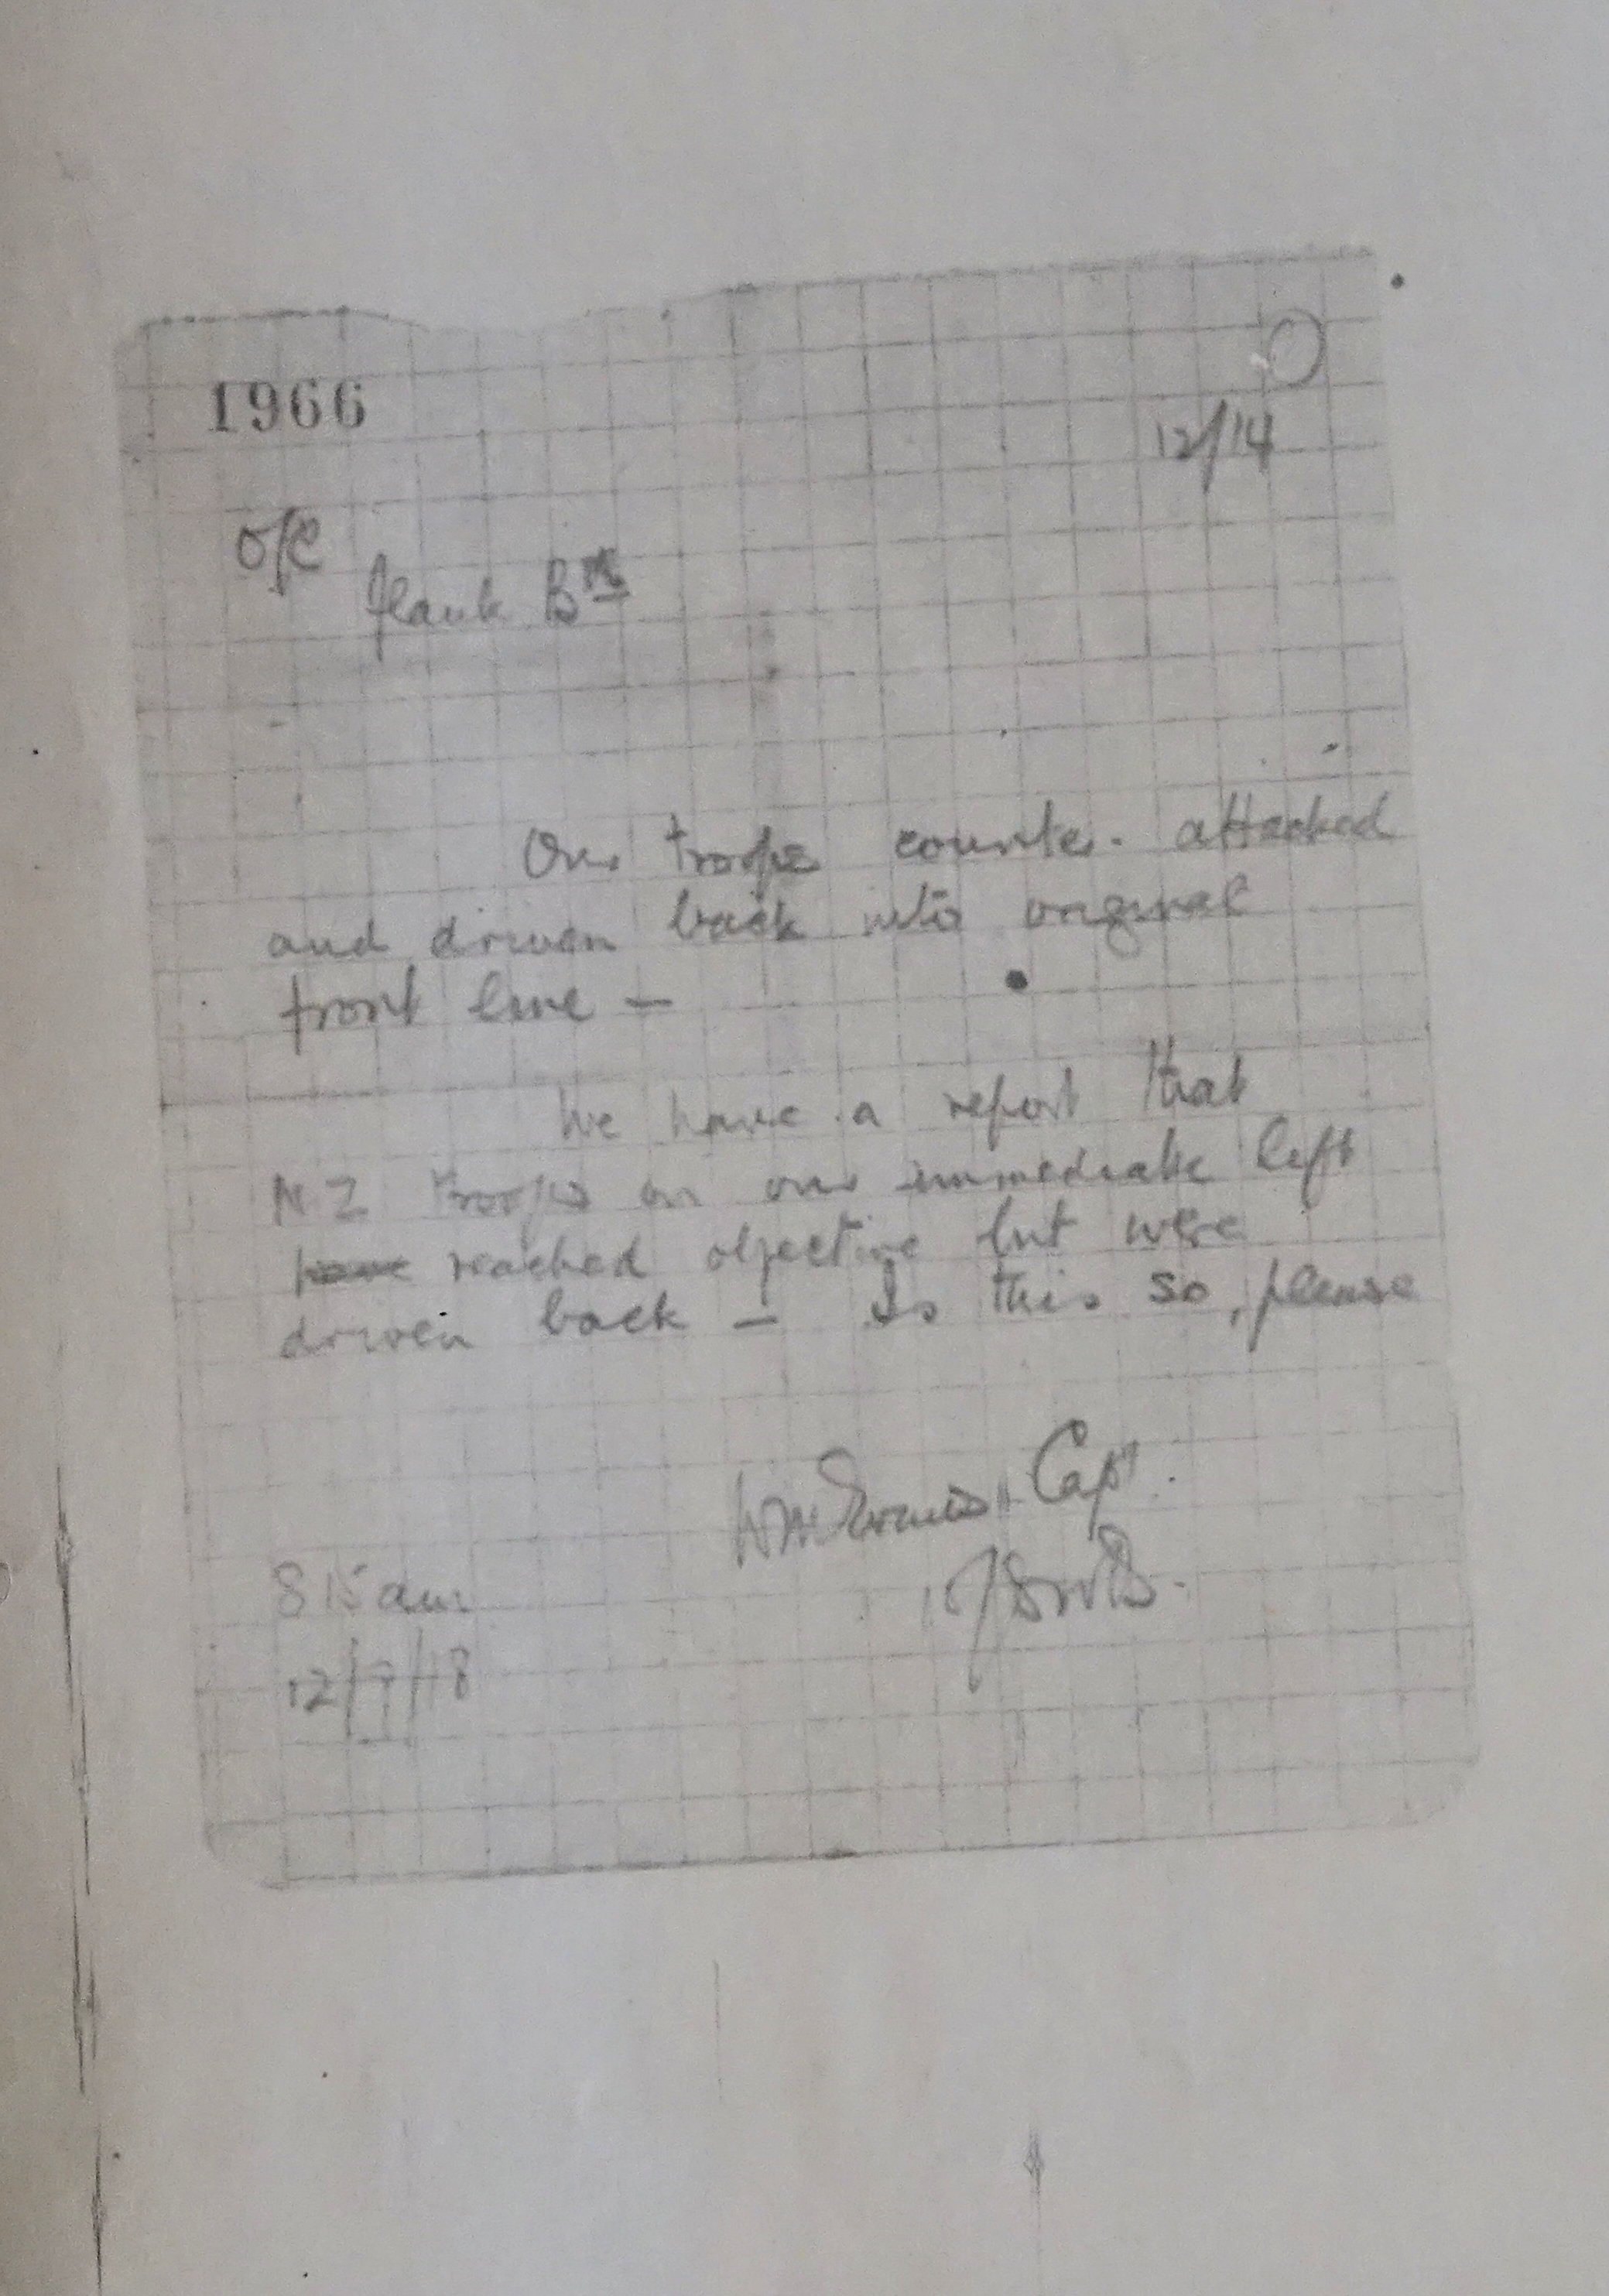 1966
12/14
O/C
flank Bn
Our troops counter-attacked
and driven back into original
front line —
We have a report that
N Z troops on our immediate left
have reached objective but were
driven back — Is this so, please
Capt.
8 15 am
12/9/18